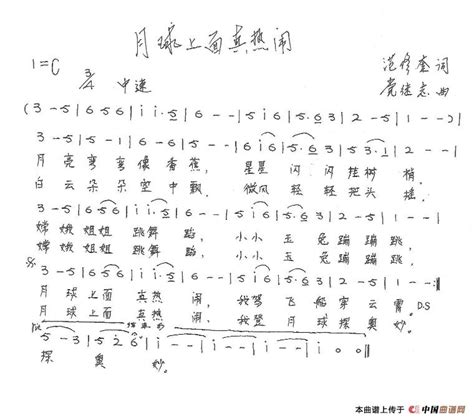 月球上面真热闹
1=C 3/4 中速
范修奎 词
党继志 曲
(3 - 5 | 6 5 6 | i i · 5 | 6 - - | 5 - 6 | i 6 5 | 5 · 6 3 | 2 - 5 | 1 - - )
3 - 5 | 5 - 1 | 6 5 6 | 5 - - | 6 - 6 | i 6 5 | 5 · 6 5 | 5 3 · 1 | 2 - - |
月亮弯弯像香蕉, 星星闪闪挂树梢。
白云朵朵空中飘, 微风轻轻把头摇。
嫦娥姐姐跳舞蹈, 小小玉兔蹦蹦跳,
嫦娥姐姐跳舞蹈, 小小玉兔蹦蹦跳,
月球上面真热闹, 我驾飞船穿云霄。D.S
月球上面真热闹, 我登月球探奥妙。
结束句
5 - 3 | 5 2 6 | i - - | i - - | i - - | i 0 0 ‖
探奥妙。
本曲谱上传于 中国曲谱网